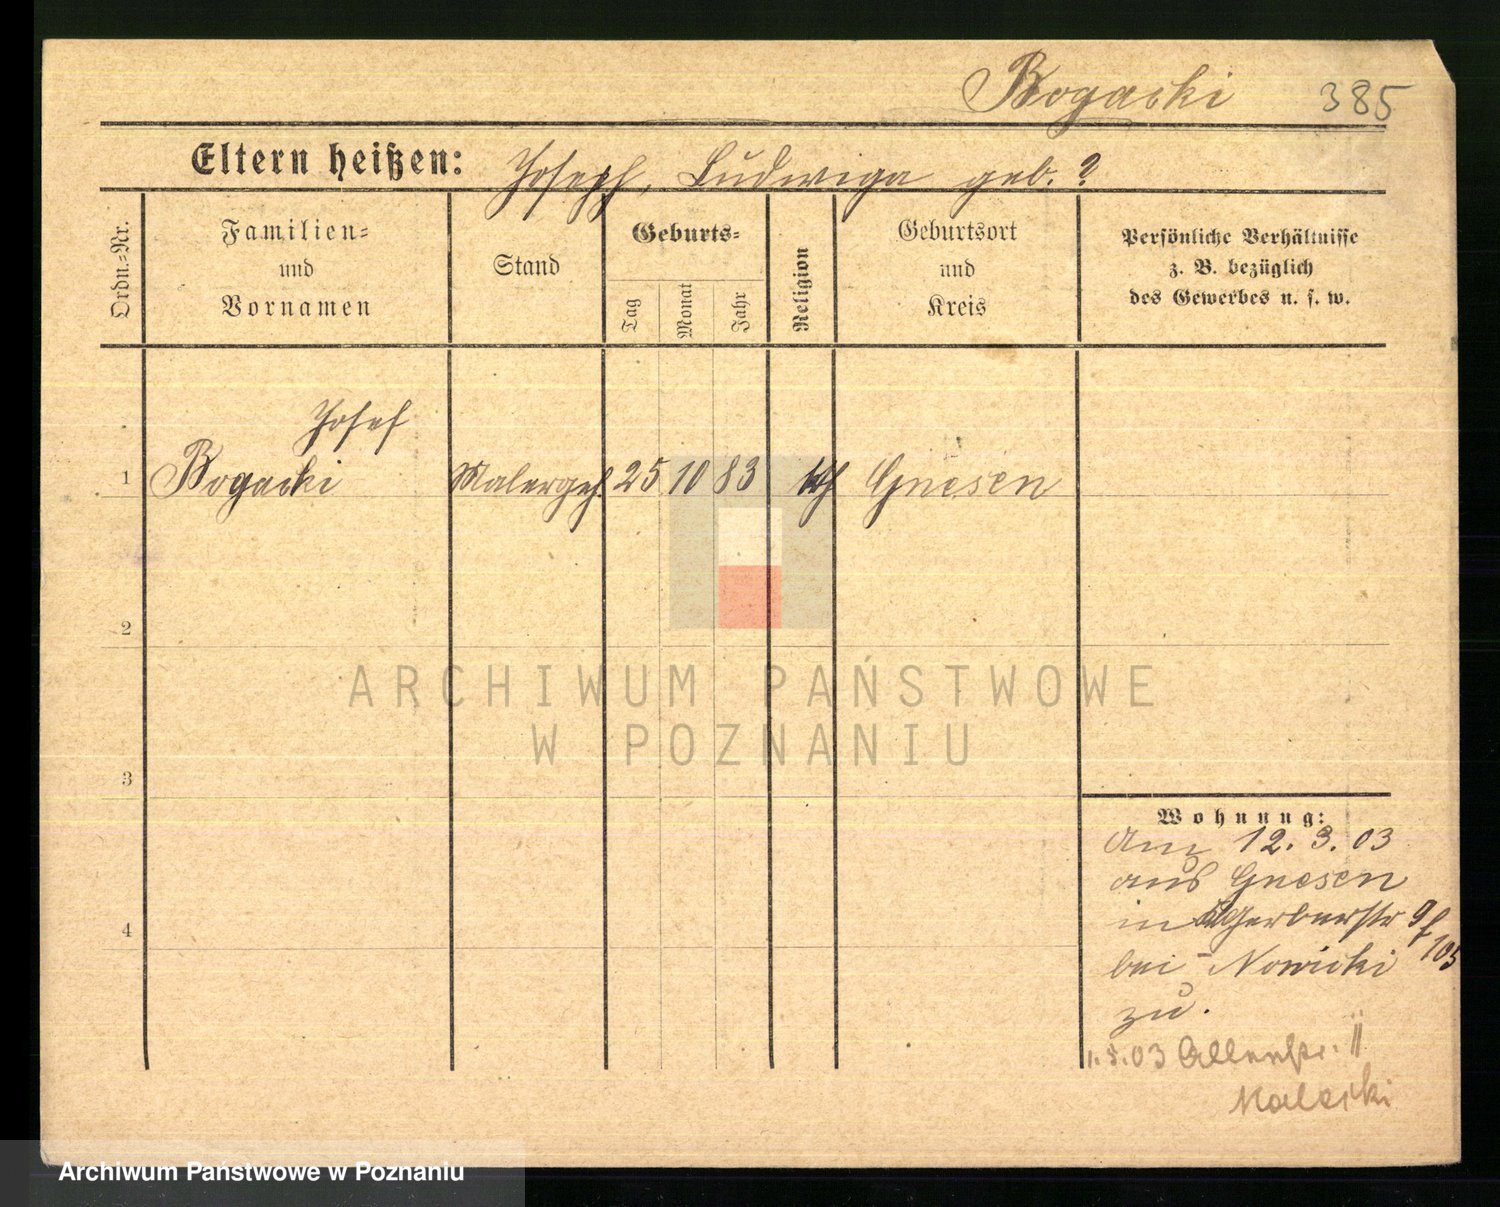 Bogacki 385
Eltern heißen: Joseph, Ludwiga geb. ?
Ordn.-Nr.
Familien- und Vornamen
Stand
Geburts-
Tag
Monat
Jahr
Religion
Geburtsort und Kreis
Persönliche Verhältnisse
z. B. bezüglich
des Gewerbes u. s. w.
Josef
1 Bogacki Malergeh. 25 10 83 kth Gnesen
2
ARCHIWUM PAŃSTWOWE
W POZNANIU
3
Wohnung:
Am 12. 3. 03
aus Gnesen
in Gerberstr 9/
105
bei Nowicki
4
zu.
1. 5. 03 II
Archiwum Państwowe w Poznaniu